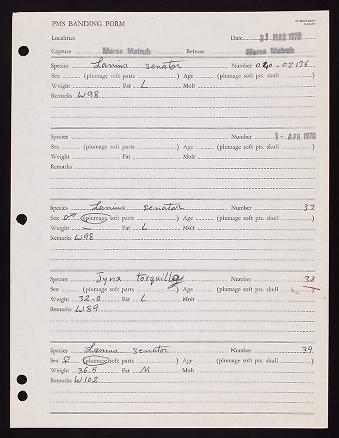 PMS BANDING FORM
Localities Date 31 MAR 1970
Capture Mersa Matruh Release Mersa Matruh
Species Lanius senator Number 040-02136
Sex (plumage soft parts ) Age (plumage soft pts. skull )
Weight Fat L Molt
Remarks W98
Species Number 1 - APR 1970
Sex (plumage soft parts ) Age (plumage soft pts. skull )
Weight Fat Molt
Remarks
Species Lanius senator Number 37
Sex ♂ (plumage soft parts ) Age (plumage soft pts. skull )
Weight — Fat L Molt
Remarks W98
Species Jynx torquilla Number 38
Sex (plumage soft parts ) Age (plumage soft pts. skull )
Weight 32.0 Fat L Molt
Remarks W89
Species Lanius senator Number 39
Sex ♀ (plumage soft parts ) Age (plumage soft pts. skull )
Weight 36.5 Fat M Molt
Remarks W102